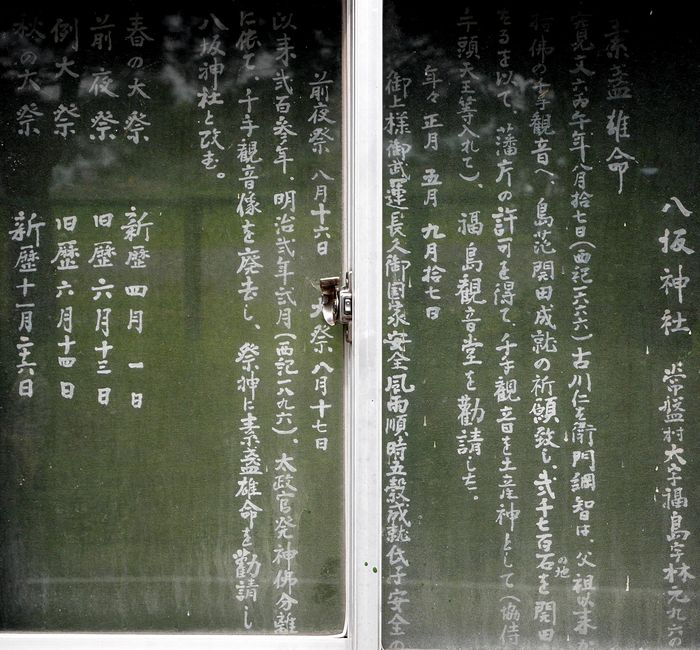 八坂神社 常盤村大字福島字林元九六の
素盞雄命
寛文六丙午年八月拾七日(西記一六六六)古川仁左衛門綱智は、父祖以来か
持佛の千手観音へ、島范開田成就の祈願致し、弐千七百石の地を開田
せるを以て、藩庁の許可を得て、千手観音を土産神として(協侍
牛頭天王等入れて)、福島観音堂を勸請した。
年々正月 五月 九月拾七日
御上様御武運長久御国家安全風雨順時五穀成就氏子安全の
前夜祭 八月十六日 大祭 八月十七日
以来弐百参年、明治弐年弐月(西記一八九六)、太政官発神佛分離
に依て、千手観音像を廃去し、祭神に素盞雄命を勸請し
八坂神社と改む。
春の大祭 新歴 四月 一日
前夜祭 旧歴 六月十三日
例大祭 旧歴 六月十四日
秋の大祭 新歴 十一月二六日